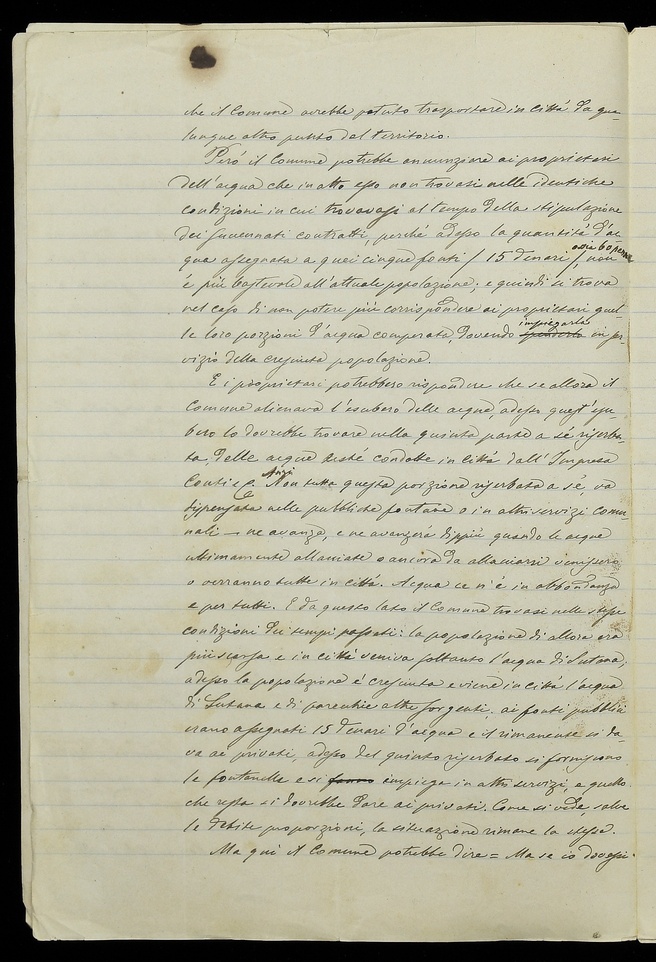 che il Comune avrebbe potuto trasportare in Città da qua-
lunque altro punto del territorio.
Però il Comune potrebbe annunziare ai proprietari
dell'acqua che in atto esso non trovasi nelle identiche
condizioni in cui trovavasi al tempo della stipulazione
dei succennati contratti, perchè adesso la quantità d'ac
qua assegnata a quei cinque fonti / 15 denari, ossia 60 / non
è più bastevole all'attuale popolazione; e quindi si trova
nel caso di non potere più corrispondere ai proprietari quel-
le loro porzioni d'acqua comperate, dovendo impiegarla in ser-
vizio della cresciuta popolazione.
E i proprietari potrebbero rispondere che se allora il
Comune alienava l'esubero delle acque, adesso quest'esu
bero lo dovrebbe trovare nella quinta parte a sé riserba-
ta, delle acque testè condotte in città dall'Impresa
Conti e C. Anzi Non tutta questa porzione riserbata a sé, va
dispensata nelle pubbliche fontane o in altri servizi comu-
nali — ne avanza, e ne avanzerà dippiù quando le acque
ultimamente allacciate o ancora da allacciarsi venissero
o verranno tutte in città. Acqua ce n'è in abbondanza
e per tutti. E da questo lato il Comune trovasi nelle stesse
condizioni dei tempi passati: la popolazione di allora era
più scarsa e in città veniva soltanto l'acqua di Sutana;
adesso la popolazione è cresciuta e viene in città l'acqua
di Sutana e di parecchie altre sorgenti; ai fonti pubblici
erano assegnati 15 denari d'acqua e il rimanente si da-
va ai privati, adesso del quinto riserbato si forniscono
le fontanelle e si impiega in altri servizi, e quello
che resta si dovrebbe dare ai privati. Come si vede, salve
le debite proporzioni, la situazione rimane la stessa.
Ma qui il Comune potrebbe dire = Ma se io dovessi